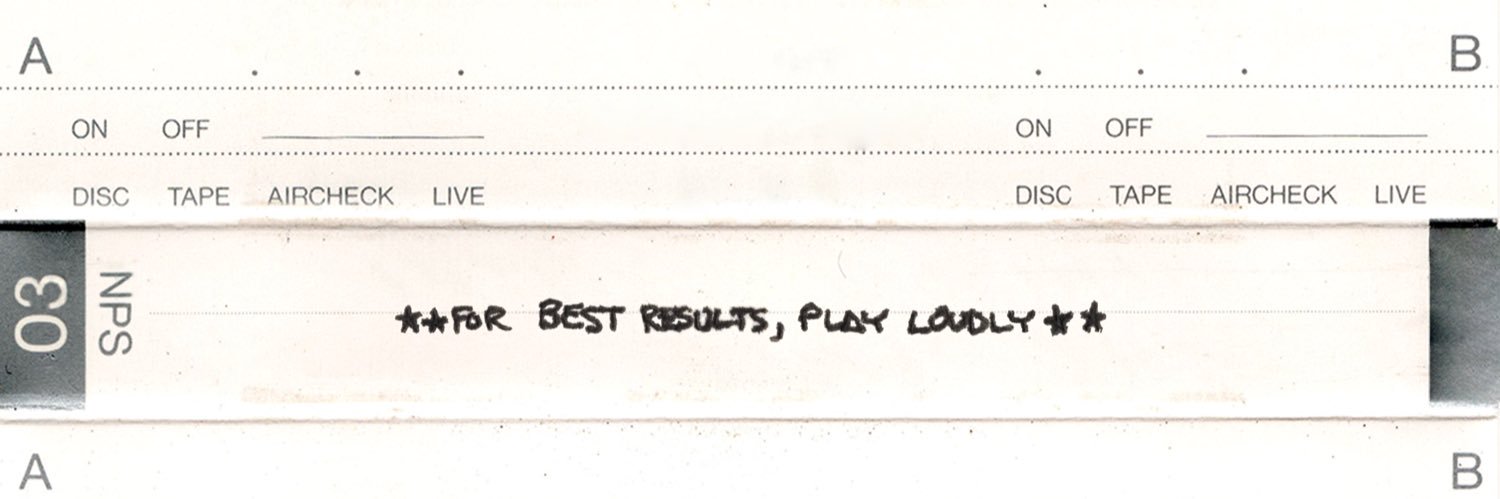 A B
ON OFF ON OFF
DISC TAPE AIRCHECK LIVE DISC TAPE AIRCHECK LIVE
03 NPS **FOR BEST RESULTS, PLAY LOUDLY**
A B